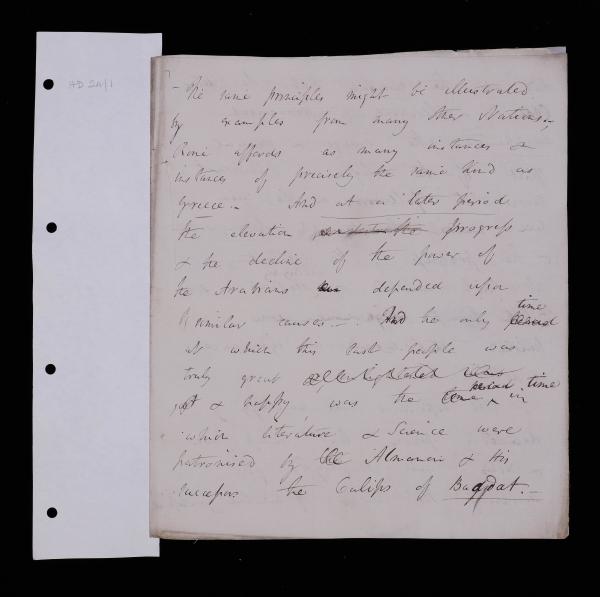 HD 2A/1
- The same principles might be illustrated
by examples from many other Nations.-
Rome affords as many instances &
instances of precisely the same kind as
Greece. - And at a later period
the elevation progress
& the decline of the power of
the Arabians depended upon
similar causes. - And the only period time
at which this last people was
truly great & enlightated
& happy was the time period time in
which literature & Science were
patronised by the Almanon & His
successors the Califs of Bagdat. -